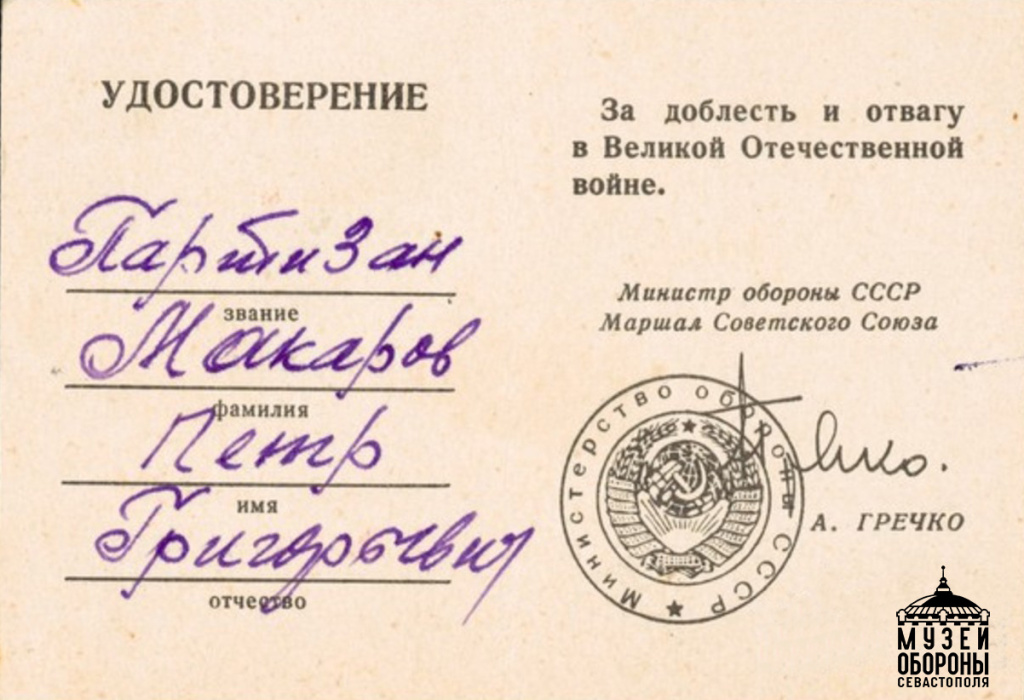 УДОСТОВЕРЕНИЕ
Партизан
звание
Макаров
фамилия
Петр
имя
Григорьевич
отчество
За доблесть и отвагу
в Великой Отечественной
войне.
Министр обороны СССР
Маршал Советского Союза
Министерство обороны СССР
А. ГРЕЧКО
МУЗЕЙ
ОБОРОНЫ
СЕВАСТОПОЛЯ